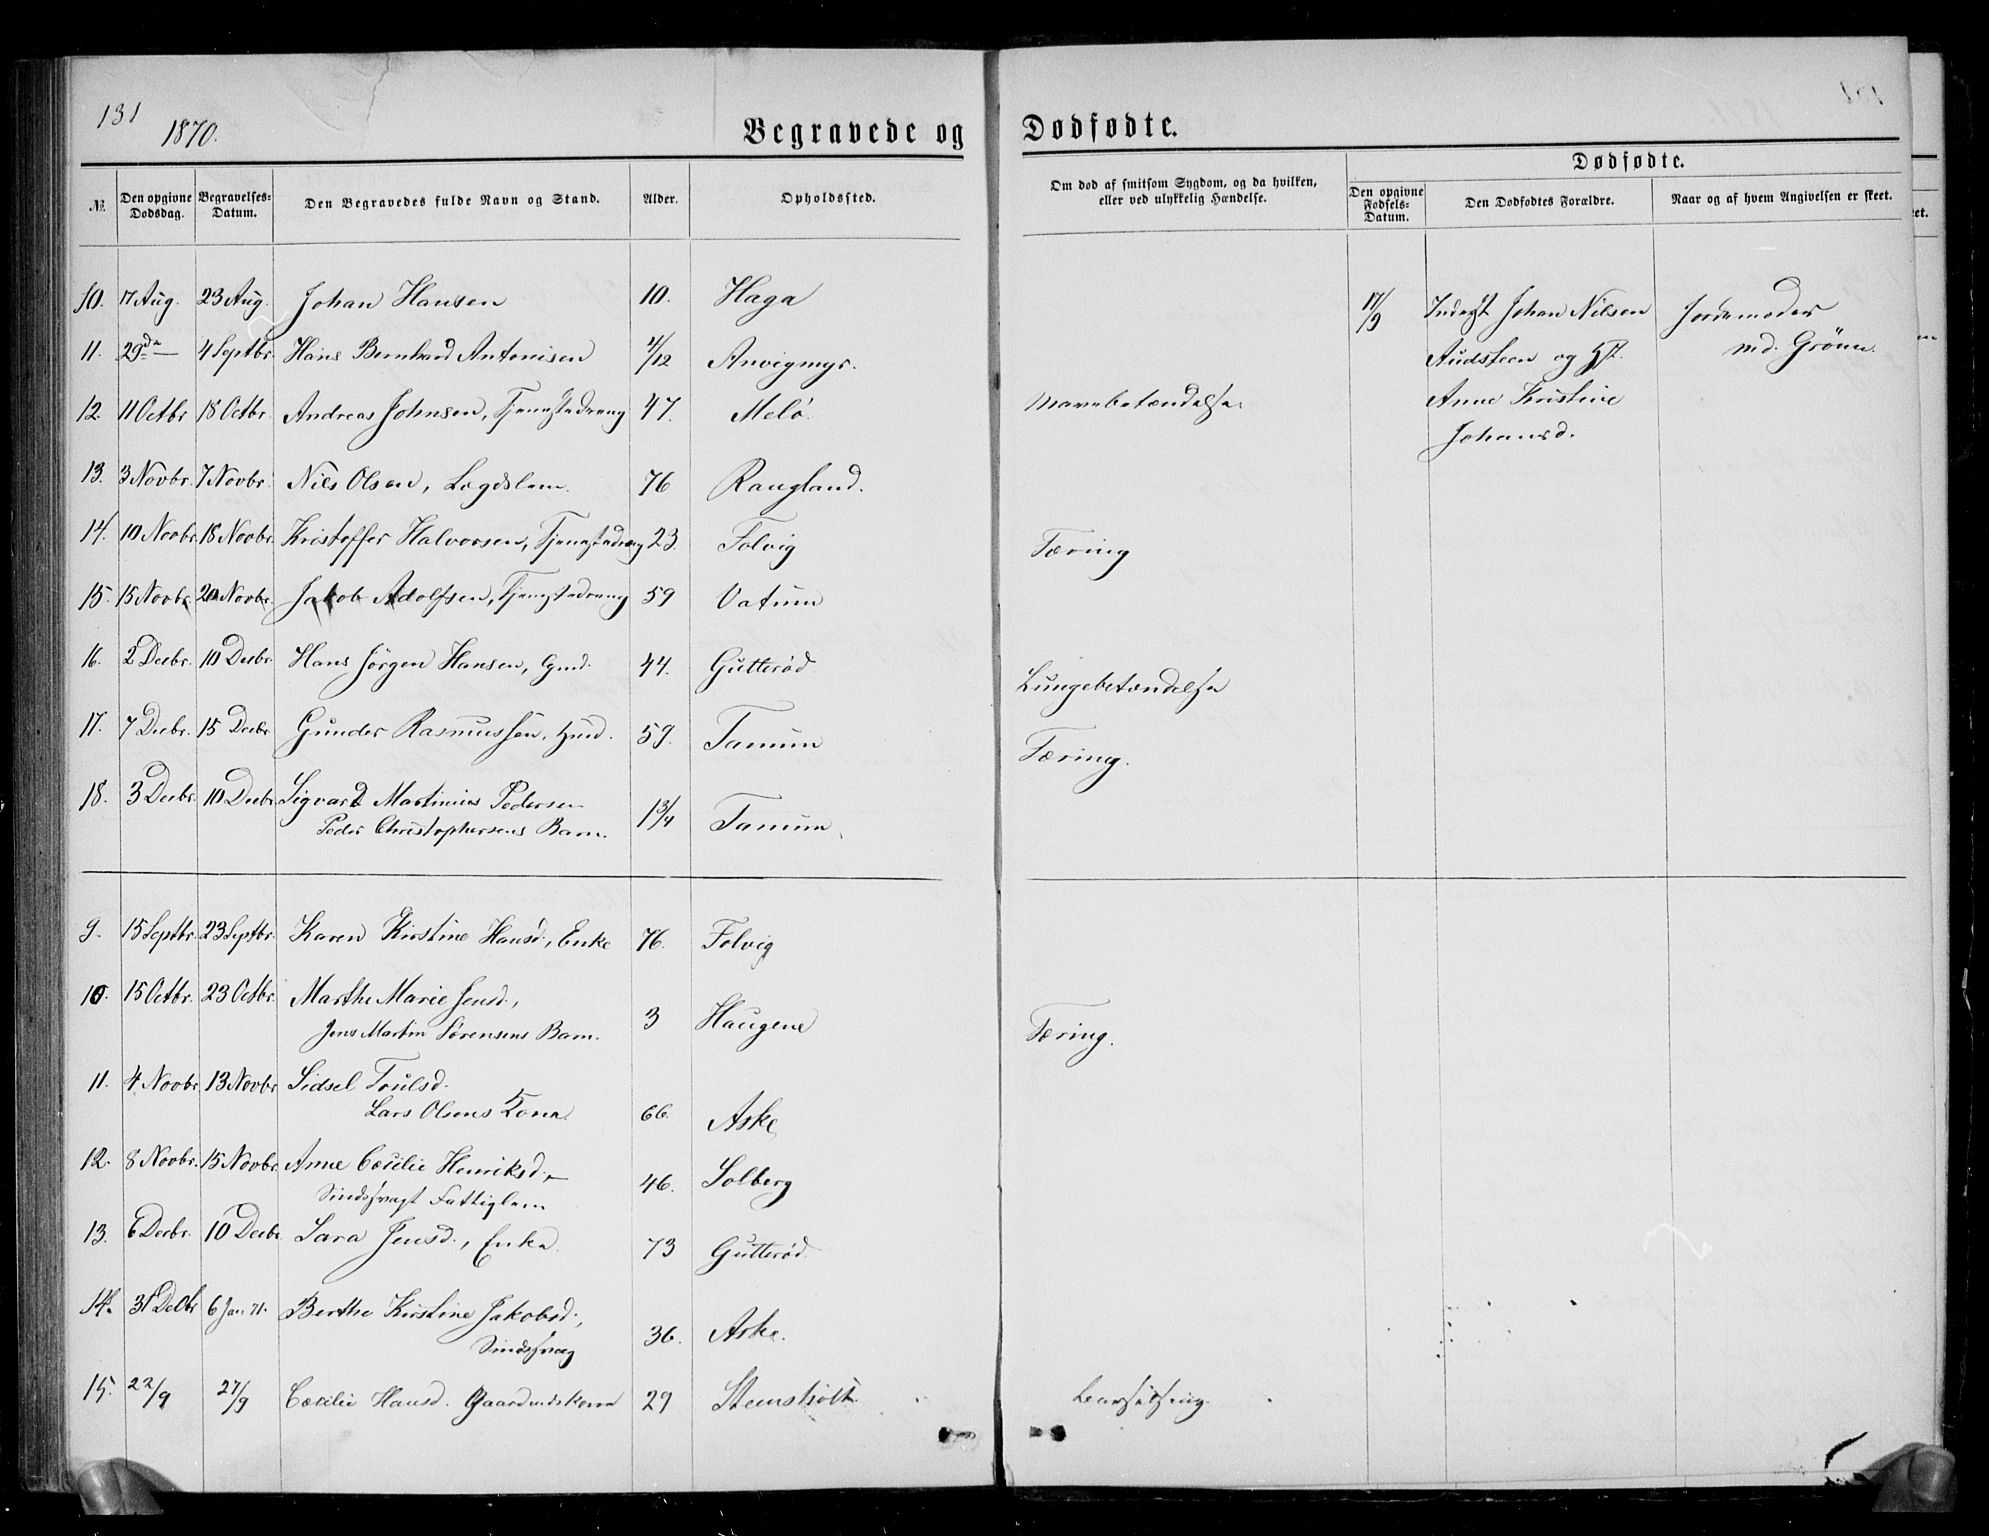 131
1870.
Begravede og Dødfødte.
Dødfødte.
№ Den opgivne Dødsdag. Begravelses-Datum. Den Begravedes fulde Navn og Stand. Alder. Opholdssted. Om død af smitsom Sygdom, og da hvilken, eller ved ulykkelig Hændelse. Den opgivne Fødsels-Datum. Den Dødfødtes Forældre. Naar og af hvem Angivelsen er skeet.
10. 17 Aug. 23 Aug. Johan Hansen 10. Haga 17/9 Johan Nilsen Jordemoder
11. 29 da — 4 Septbr. Hans Bernhard Antonisen 4/12 Anvigmyr. Audsteen og Hst. md. Grönn.
12. 11 Octbr 18 Octbr. Andreas Johnsen, Tjenestedreng 47. Melö. Mavebetændelse Anne Kristine
Johansd.
13. 3 Novbr. 7 Novbr. Nils Olsen, Lægdslem. 76 Raugland.
14. 10 Novbr. 18 Novbr. Kristoffer Halvorsen, Tjenestedreng 23. Folvig Tæring
15. 15 Novbr. 20 Novbr. Jakob Adolfsen, Tjenestedreng 59 Vatum
16. 2 Decbr. 10 Decbr. Hans Jörgen Hansen, Gmd. 44. Gutteröd Lungebetændelse
17. 7 Decbr. 15 Decbr. Gunder Rasmussen, Hmd. 59. Tanum Tæring.
18. 3 Decbr. 10 Decbr. Sigvard Martinius Pedersen
Peder Christophersens Barn. 1 3/4 Tanum
9. 15 Septbr. 23 Septbr. Karen Kirstine Hansd., Enke 76. Folvig
10. 15 Octbr. 23 Octbr. Marthe Marie Jensd.,
Jens Martin Sörensens Barn. 3 Haugene Tæring.
11. 4 Novbr. 13 Novbr. Sidsel Trulsd.
Lars Olsens Kone 66. Aske
12. 8 Novbr. 15 Novbr. Anne Cæcilie Henriksd.,
Sindssvagt Fattiglem 46. Solberg
13. 6 Decbr. 10 Decbr. Sara Jensd., Enke 73 Gutteröd.
14. 31 Decbr 6 Jan 71. Berthe Kirstine Jakobsd.,
Sindssvag 36. Aske.
15. 22/9 27/9 Cæcilie Hansd. Gaardmdskone 29 Stensholt Barselseng.